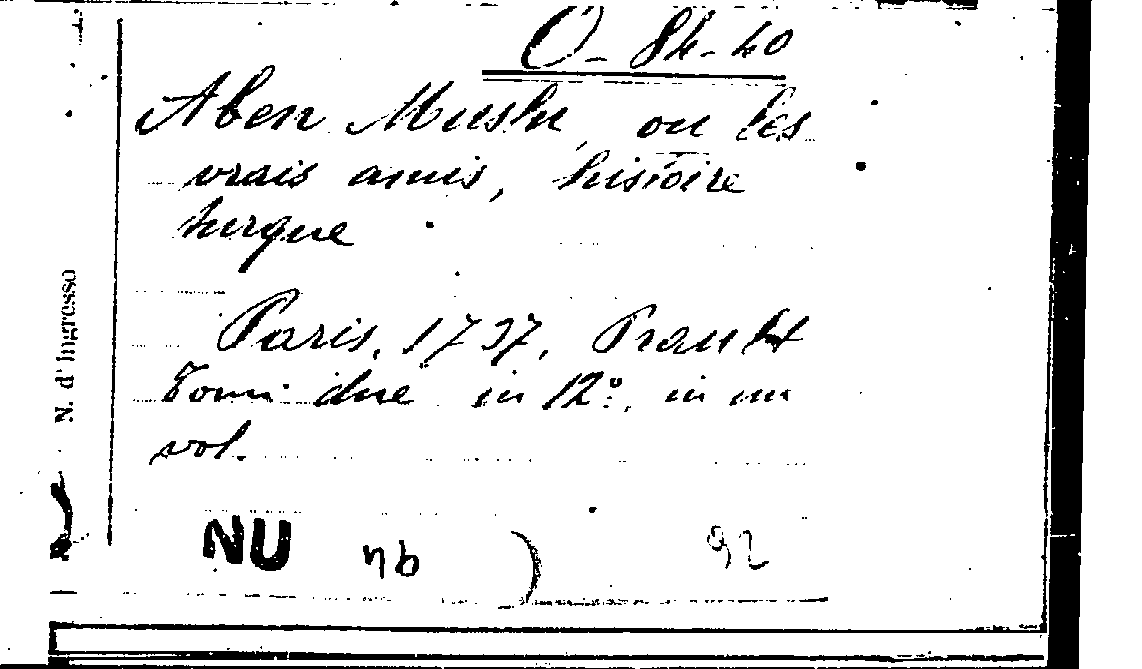 O-84-40
Aben Muslu, ou les
vrais amis, histoire
turque
Paris, 1737, Prault
Tomi due in 12º, in un
vol.
N. d'Ingresso
NU nb ) 92